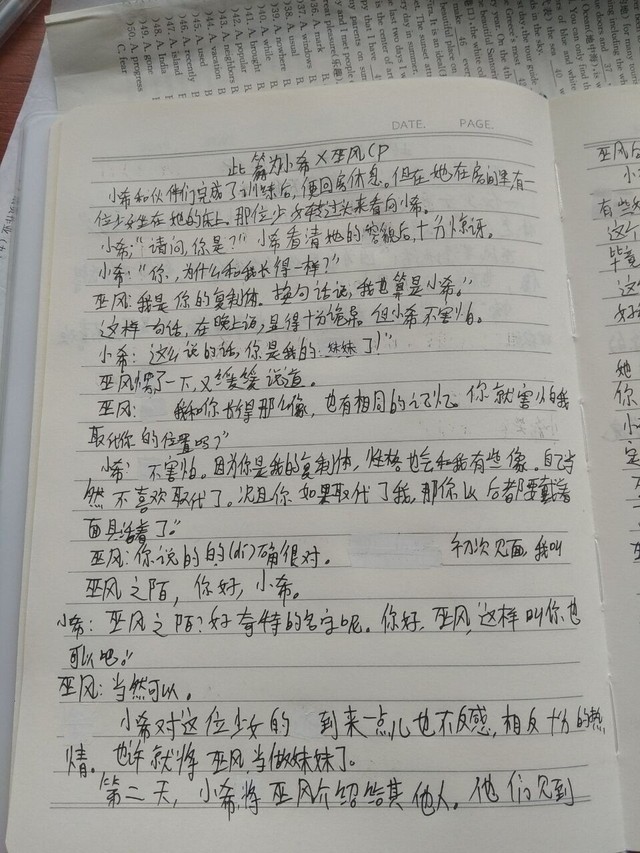 49. A. gone
50. A. progress
C. fear
48. A. India
47. A. island
46. A. recently
45. A. used
44. A. vacation
43. A. neighbors
42. A. popular
41. A. brought
40. A. while
39. A. northern
38. A. usual
37. A. windows
36. A. mark
DATE. PAGE.
此篇为小希×巫风CP
小希和伙伴们完成了训练后，便回房休息。但在她在房间里，有一
位少女坐在她的床上。那位少女转过头来看向小希。
小希："请问，你是？"小希看清她的容貌后，十分惊讶。
小希："你，为什么和我长得一样？"
巫风：我是你的复制体。换句话说，我也算是小希。"
这样一句话，在晚上说，显得十分诡异。但小希不害怕。
小希：这么说的话，你是我的妹妹了！"
巫风愣了一下，又笑笑说道。
巫风： 我和你长得那么像，也有相同的记忆。你就害怕我
取代你的位置吗？"
小希：不害怕。因为你是我的复制体，性格也会和我有些像。自己当
然不喜欢取代了。况且你如果取代了我，那你以后都要戴着
面具活着了。"
巫风：你说的的(dí)确很对。 初次见面，我叫
巫风之陌，你好，小希。
小希：巫风之陌？好奇特的名字呢。你好，巫风，这样叫你也
可以吧。"
巫风：当然可以。
小希对这位少女的 到来一点儿也不反感，相反十分的热
情。也许就将巫风当做妹妹了。
第二天，小希将巫风介绍给其他人。他们见到
巫风后
小
有些
这个
毕竟
这
好
她
你
小
定
巫